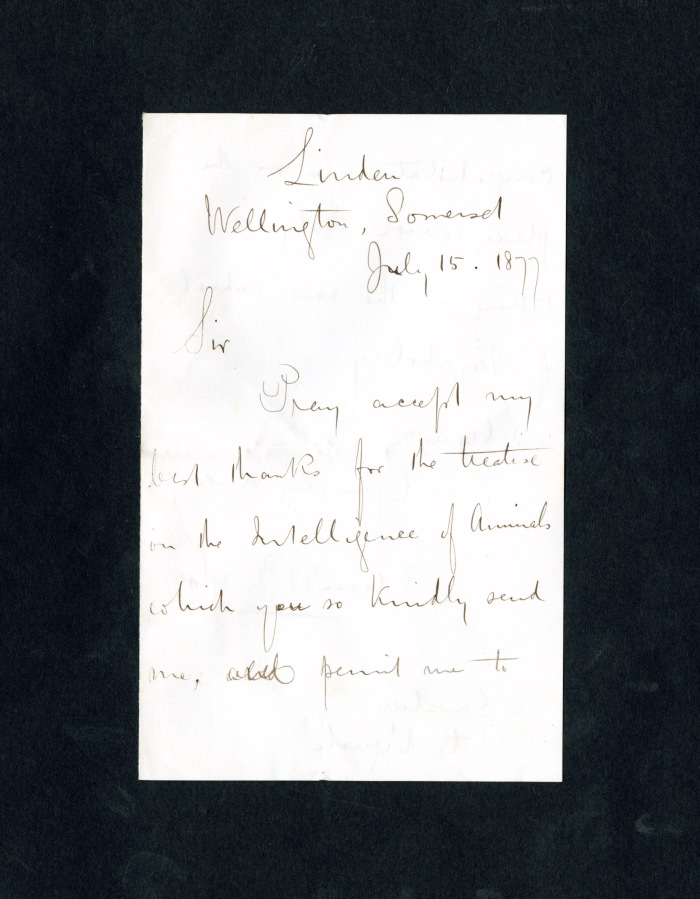 Linden
Wellington, Somerset
July 15. 1877
Sir
Pray accept my
best thanks for the treatise
on the Intelligence of Animals
which you so kindly send
me, and permit me to